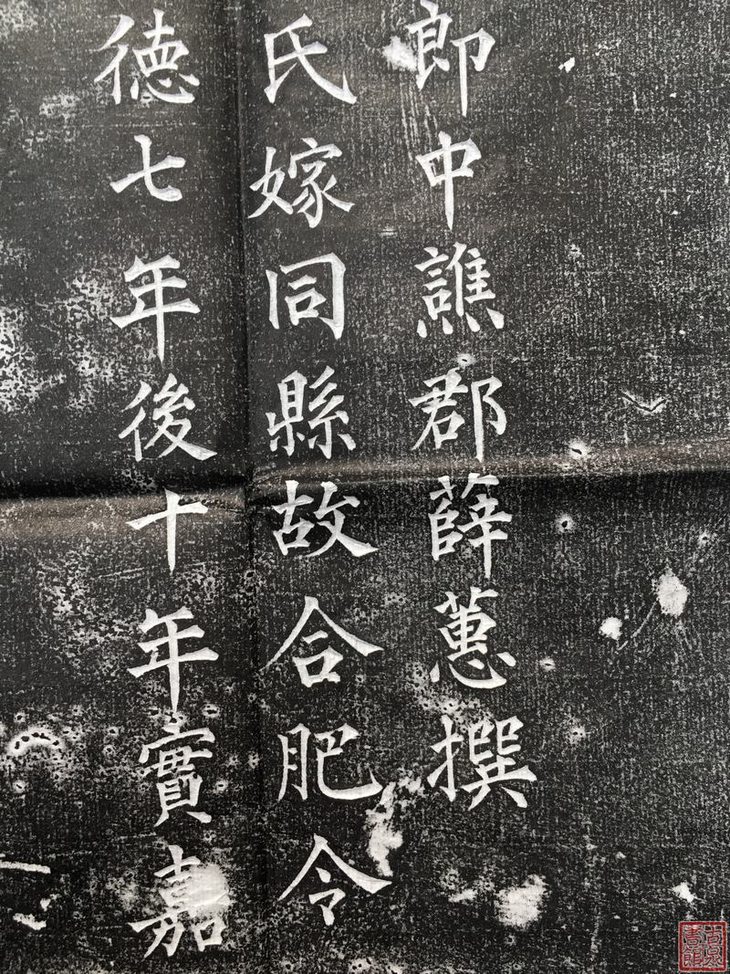 郎中譙郡薛蕙撰
氏嫁同縣故合肥令
德七年後十年實嘉